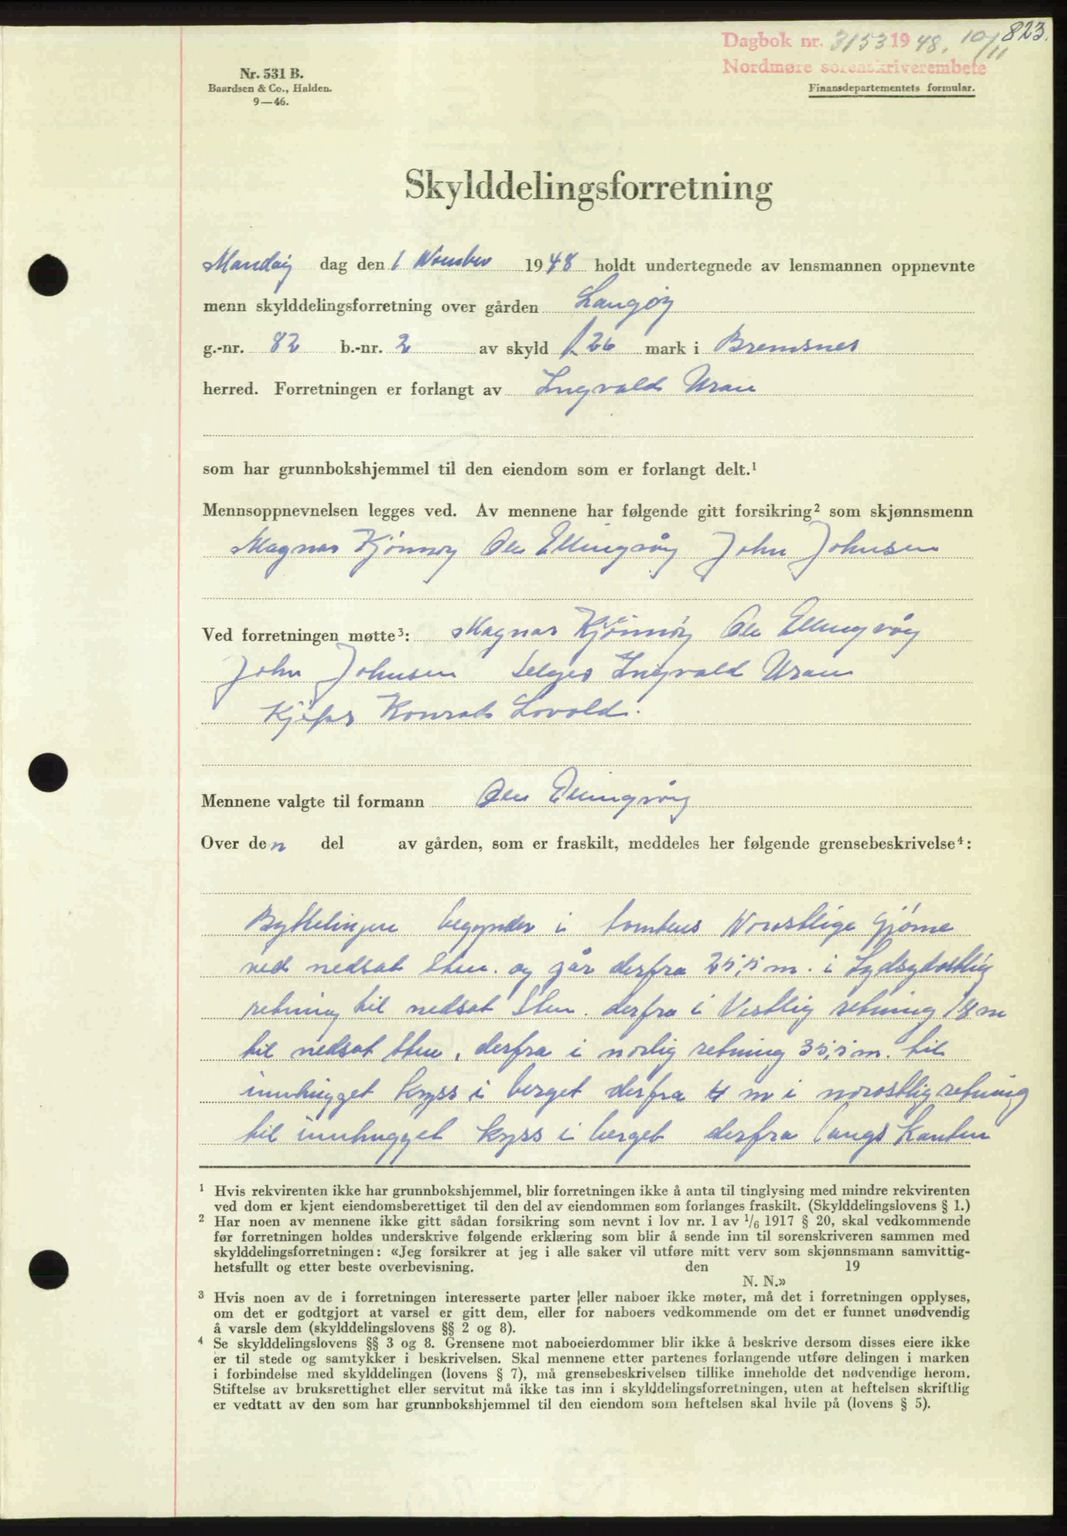 823.
Dagbok nr. 3153 1948. 10/11
Nordmøre sorenskriverembete
Nr. 531 B.
Baardsen & Co., Halden.
9—46.
Finansdepartementets formular.
Skylddelingsforretning
Mandag dag den 1 November 1948 holdt undertegnede av lensmannen oppnevnte
menn skylddelingsforretning over gården Langøy
g.-nr. 82 b.-nr. 2 av skyld 1.26 mark i Bremsnes
herred. Forretningen er forlangt av Ingvald Uran
som har grunnbokshjemmel til den eiendom som er forlangt delt.¹
Mennsoppnevnelsen legges ved. Av mennene har følgende gitt forsikring² som skjønnsmenn
Magnar Kjönnøy Ole Ellingvåg John Johnsen
Ved forretningen møtte³: Magnar Kjönnöy Ole Ellingvåg
John Johnsen Selger Ingvald Uran
Kjøper Konrad Lovold.
Mennene valgte til formann Ole Ellingvåg
Over den del av gården, som er fraskilt, meddeles her følgende grensebeskrivelse⁴:
Byttelinjen begynder i tomtens Norostlige Hjörne
ved nedsat Sten. og går derfra 25,5 m. i Sydsydostlig
retning til nedsat Sten. derfra i Vestlig retning 18 m
til nedsat Sten, derfra i norlig retning 35,5 m. til
innhugget kryss i berget derfra 4 m i norostlig retning
til innhugget kryss i berget derfra langs Kanten
¹ Hvis rekvirenten ikke har grunnbokshjemmel, blir forretningen ikke å anta til tinglysing med mindre rekvirenten
ved dom er kjent eiendomsberettiget til den del av eiendommen som forlanges fraskilt. (Skylddelingslovens § 1.)
² Har noen av mennene ikke gitt sådan forsikring som nevnt i lov nr. 1 av 1/6 1917 § 20, skal vedkommende
før forretningen holdes underskrive følgende erklæring som blir å sende inn til sorenskriveren sammen med
skylddelingsforretningen: «Jeg forsikrer at jeg i alle saker vil utføre mitt verv som skjønnsmann samvittig-
hetsfullt og etter beste overbevisning. den 19
N. N.»
³ Hvis noen av de i forretningen interesserte parter eller naboer ikke møter, må det i forretningen opplyses,
om det er godtgjort at varsel er gitt dem, eller for naboers vedkommende om det er funnet unødvendig
å varsle dem (skylddelingslovens §§ 2 og 8).
⁴ Se skylddelingslovens §§ 3 og 8. Grensene mot naboeierdommer blir ikke å beskrive dersom disses eiere ikke
er til stede og samtykker i beskrivelsen. Skal mennene etter partenes forlangende utføre delingen i marken
i forbindelse med skylddelingen (lovens § 7), må grensebeskrivelsen tillike inneholde det nødvendige herom.
Stiftelse av bruksrettighet eller servitut må ikke tas inn i skylddelingsforretningen, uten at heftelsen skriftlig
er vedtatt av den som har grunnbokshjemmel til den eiendom som heftelsen skal hvile på (lovens § 5).